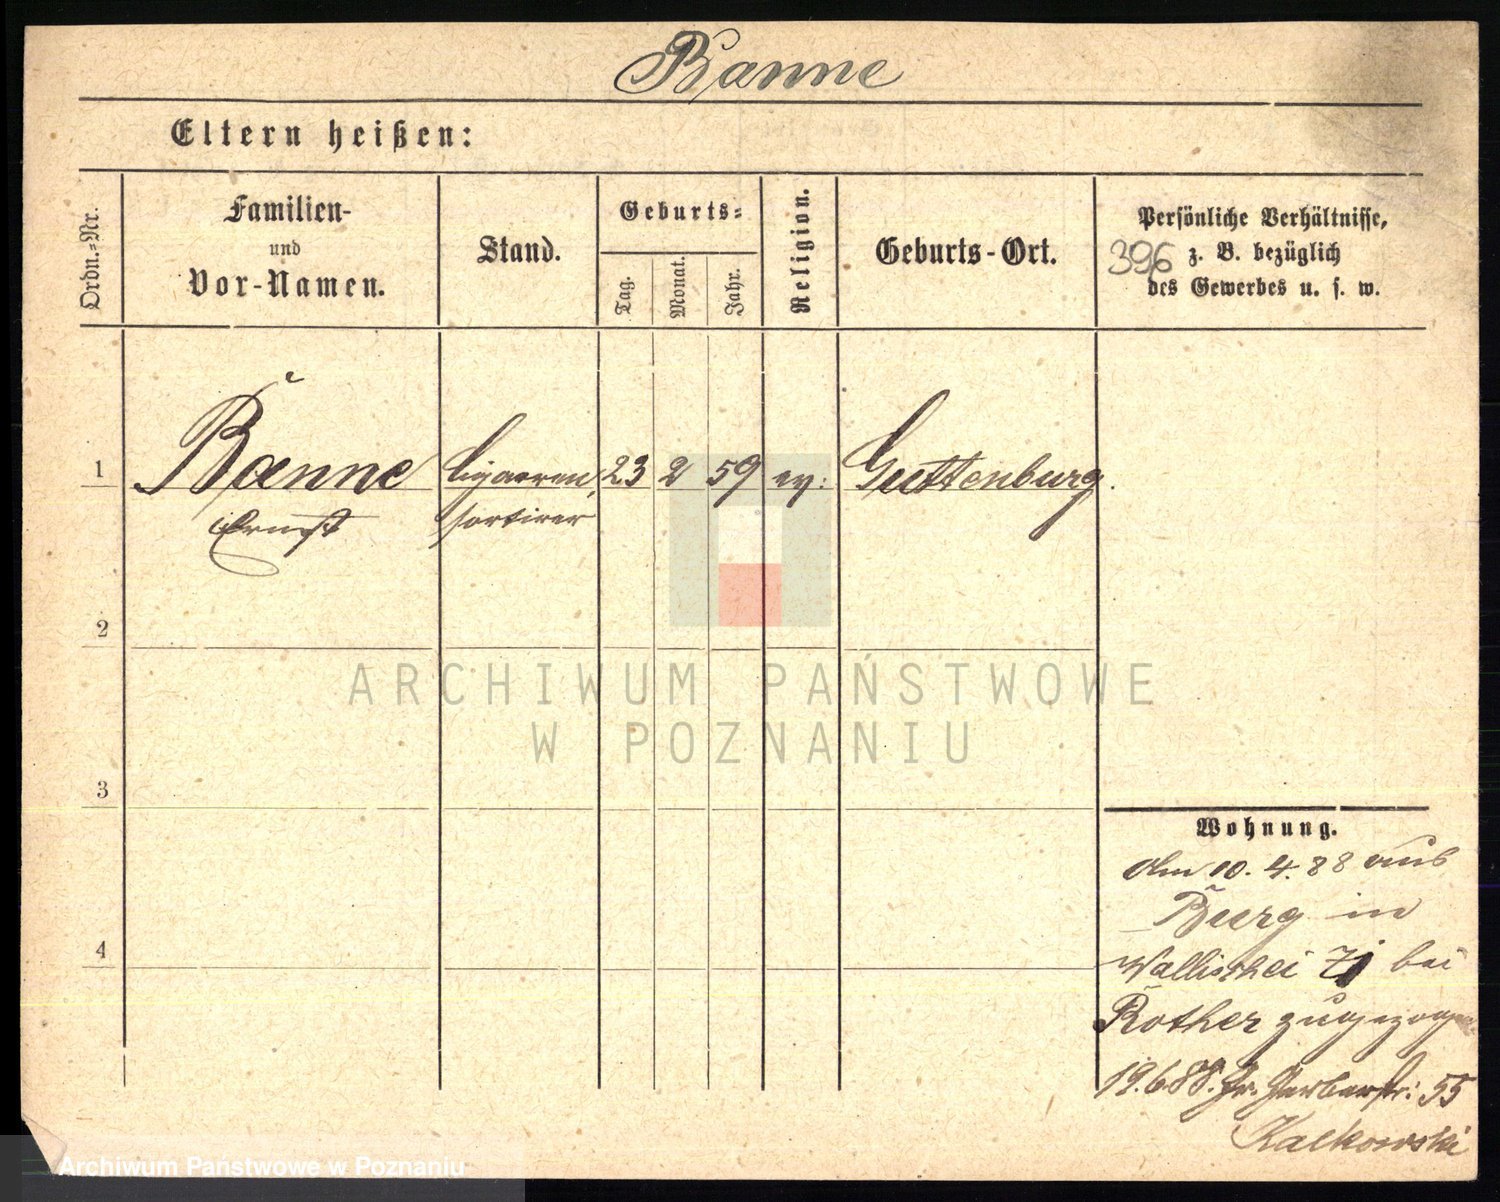 Banne
Eltern heißen:
Ordn.-Nr.
Familien-
und
Vor-Namen.
Stand.
Geburts-
Tag.
Monat.
Jahr.
Religion.
Geburts-Ort.
Persönliche Verhältnisse,
z. B. bezüglich
des Gewerbes u. s. w.
396
1
Banne
Ernst
Cigarren
sortirer
23
2
59
ev:
Guttenburg.
2
3
4
Wohnung.
Am 10. 4. 88 aus
Burg in
Wallischei 71 bei
Rother zugezogen
19.6.88. Gr. Gerberstr: 55
Kalkowski
ARCHIWUM PAŃSTWOWE
W POZNANIU
Archiwum Państwowe w Poznaniu